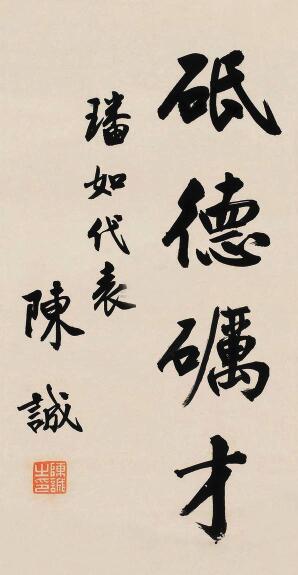 砥德礪才
璠如代表
陳誠
陳誠之印